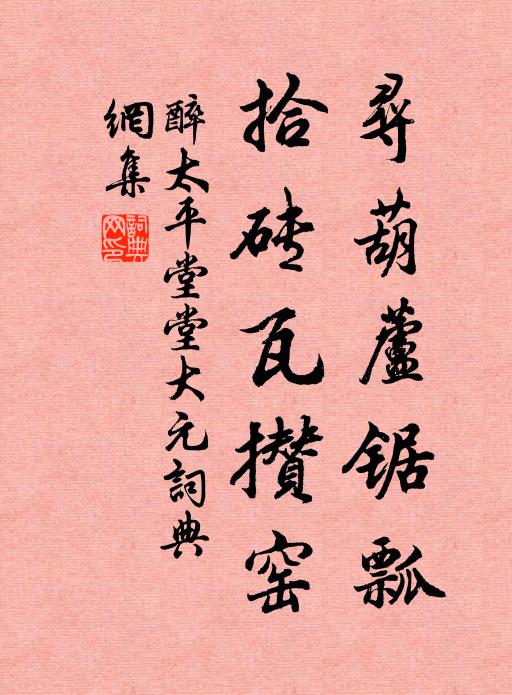 尋葫蘆锯瓢
拾砖瓦攒窑
醉太平堂堂大元詞典
網集
詞典
网印